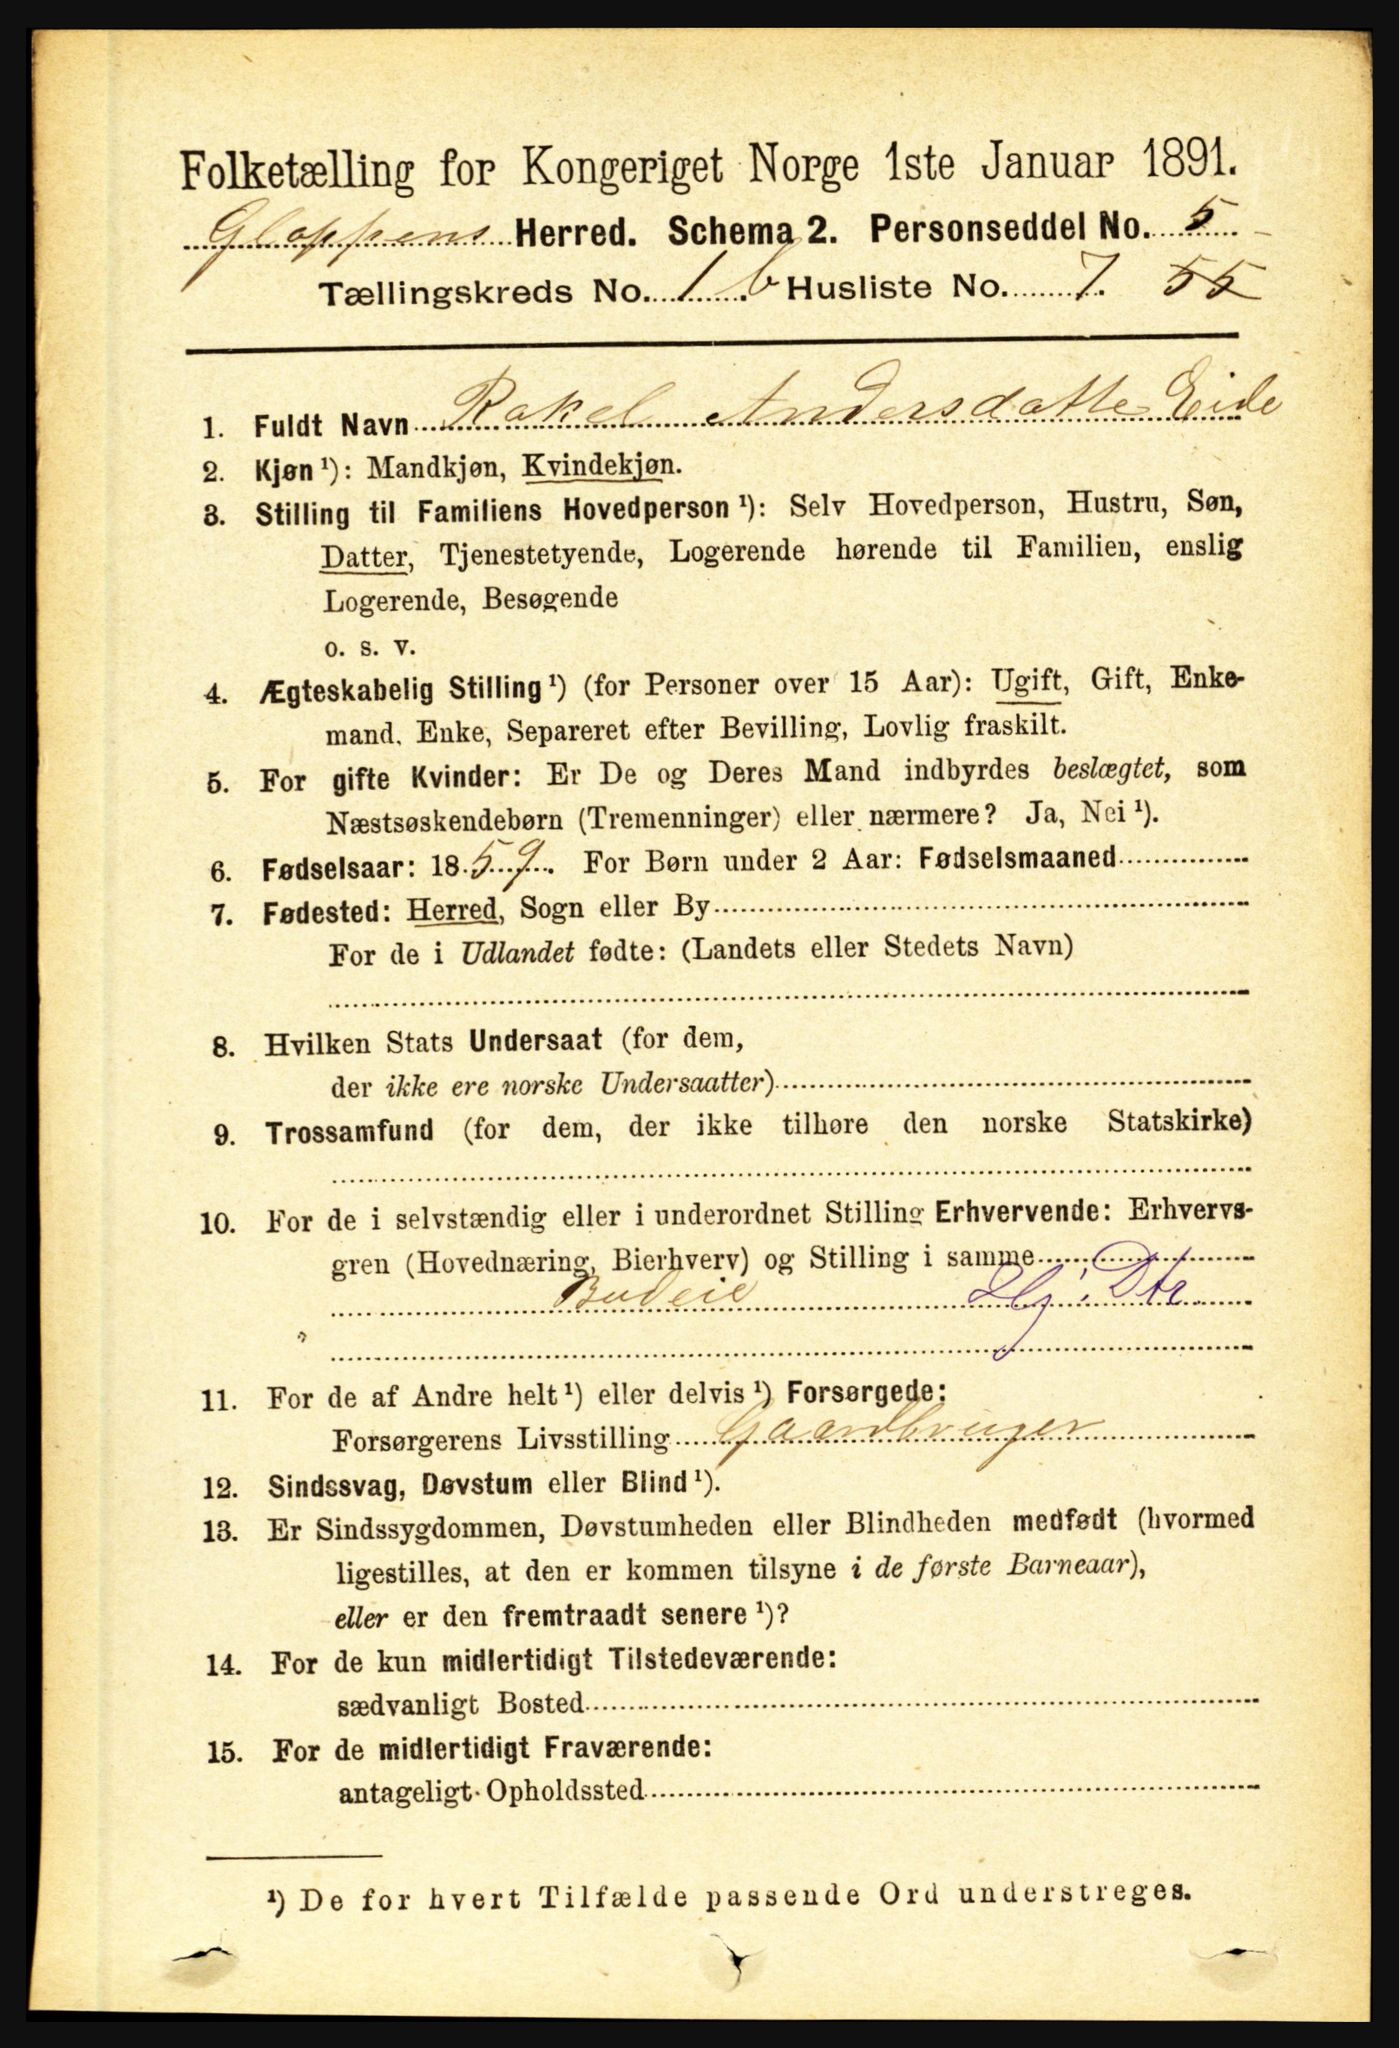 Folketælling for Kongeriget Norge 1ste Januar 1891.
Gloppens Herred. Schema 2. Personseddel No. 5
Tællingskreds No. 1 b Husliste No. 7. 55
1. Fuldt Navn Rakel Andersdatte Eide
2. Kjøn ¹): Mandkjøn, Kvindekjøn.
3. Stilling til Familiens Hovedperson ¹): Selv Hovedperson, Hustru, Søn,
Datter, Tjenestetyende, Logerende hørende til Familien, enslig
Logerende, Besøgende
o. s. v.
4. Ægteskabelig Stilling ¹) (for Personer over 15 Aar): Ugift, Gift, Enke-
mand, Enke, Separeret efter Bevilling, Lovlig fraskilt.
5. For gifte Kvinder: Er De og Deres Mand indbyrdes beslægtet, som
Næstsøskendebørn (Tremenninger) eller nærmere? Ja, Nei ¹).
6. Fødselsaar: 1859. For Børn under 2 Aar: Fødselsmaaned
7. Fødested: Herred, Sogn eller By
For de i Udlandet fødte: (Landets eller Stedets Navn)
8. Hvilken Stats Undersaat (for dem,
der ikke ere norske Undersaatter)
9. Trossamfund (for dem, der ikke tilhøre den norske Statskirke)
10. For de i selvstændig eller i underordnet Stilling Erhvervende: Erhvervs-
gren (Hovednæring, Bierhverv) og Stilling i samme
Budeie Hj. Dtr.
"
11. For de af Andre helt ¹) eller delvis ¹) Forsørgede:
Forsørgerens Livsstilling Gaardbruger
12. Sindssvag, Døvstum eller Blind ¹).
13. Er Sindssygdommen, Døvstumheden eller Blindheden medfødt (hvormed
ligestilles, at den er kommen tilsyne i de første Barneaar),
eller er den fremtraadt senere ¹)?
14. For de kun midlertidigt Tilstedeværende:
sædvanligt Bosted
15. For de midlertidigt Fraværende:
antageligt Opholdssted
¹) De for hvert Tilfælde passende Ord understreges.